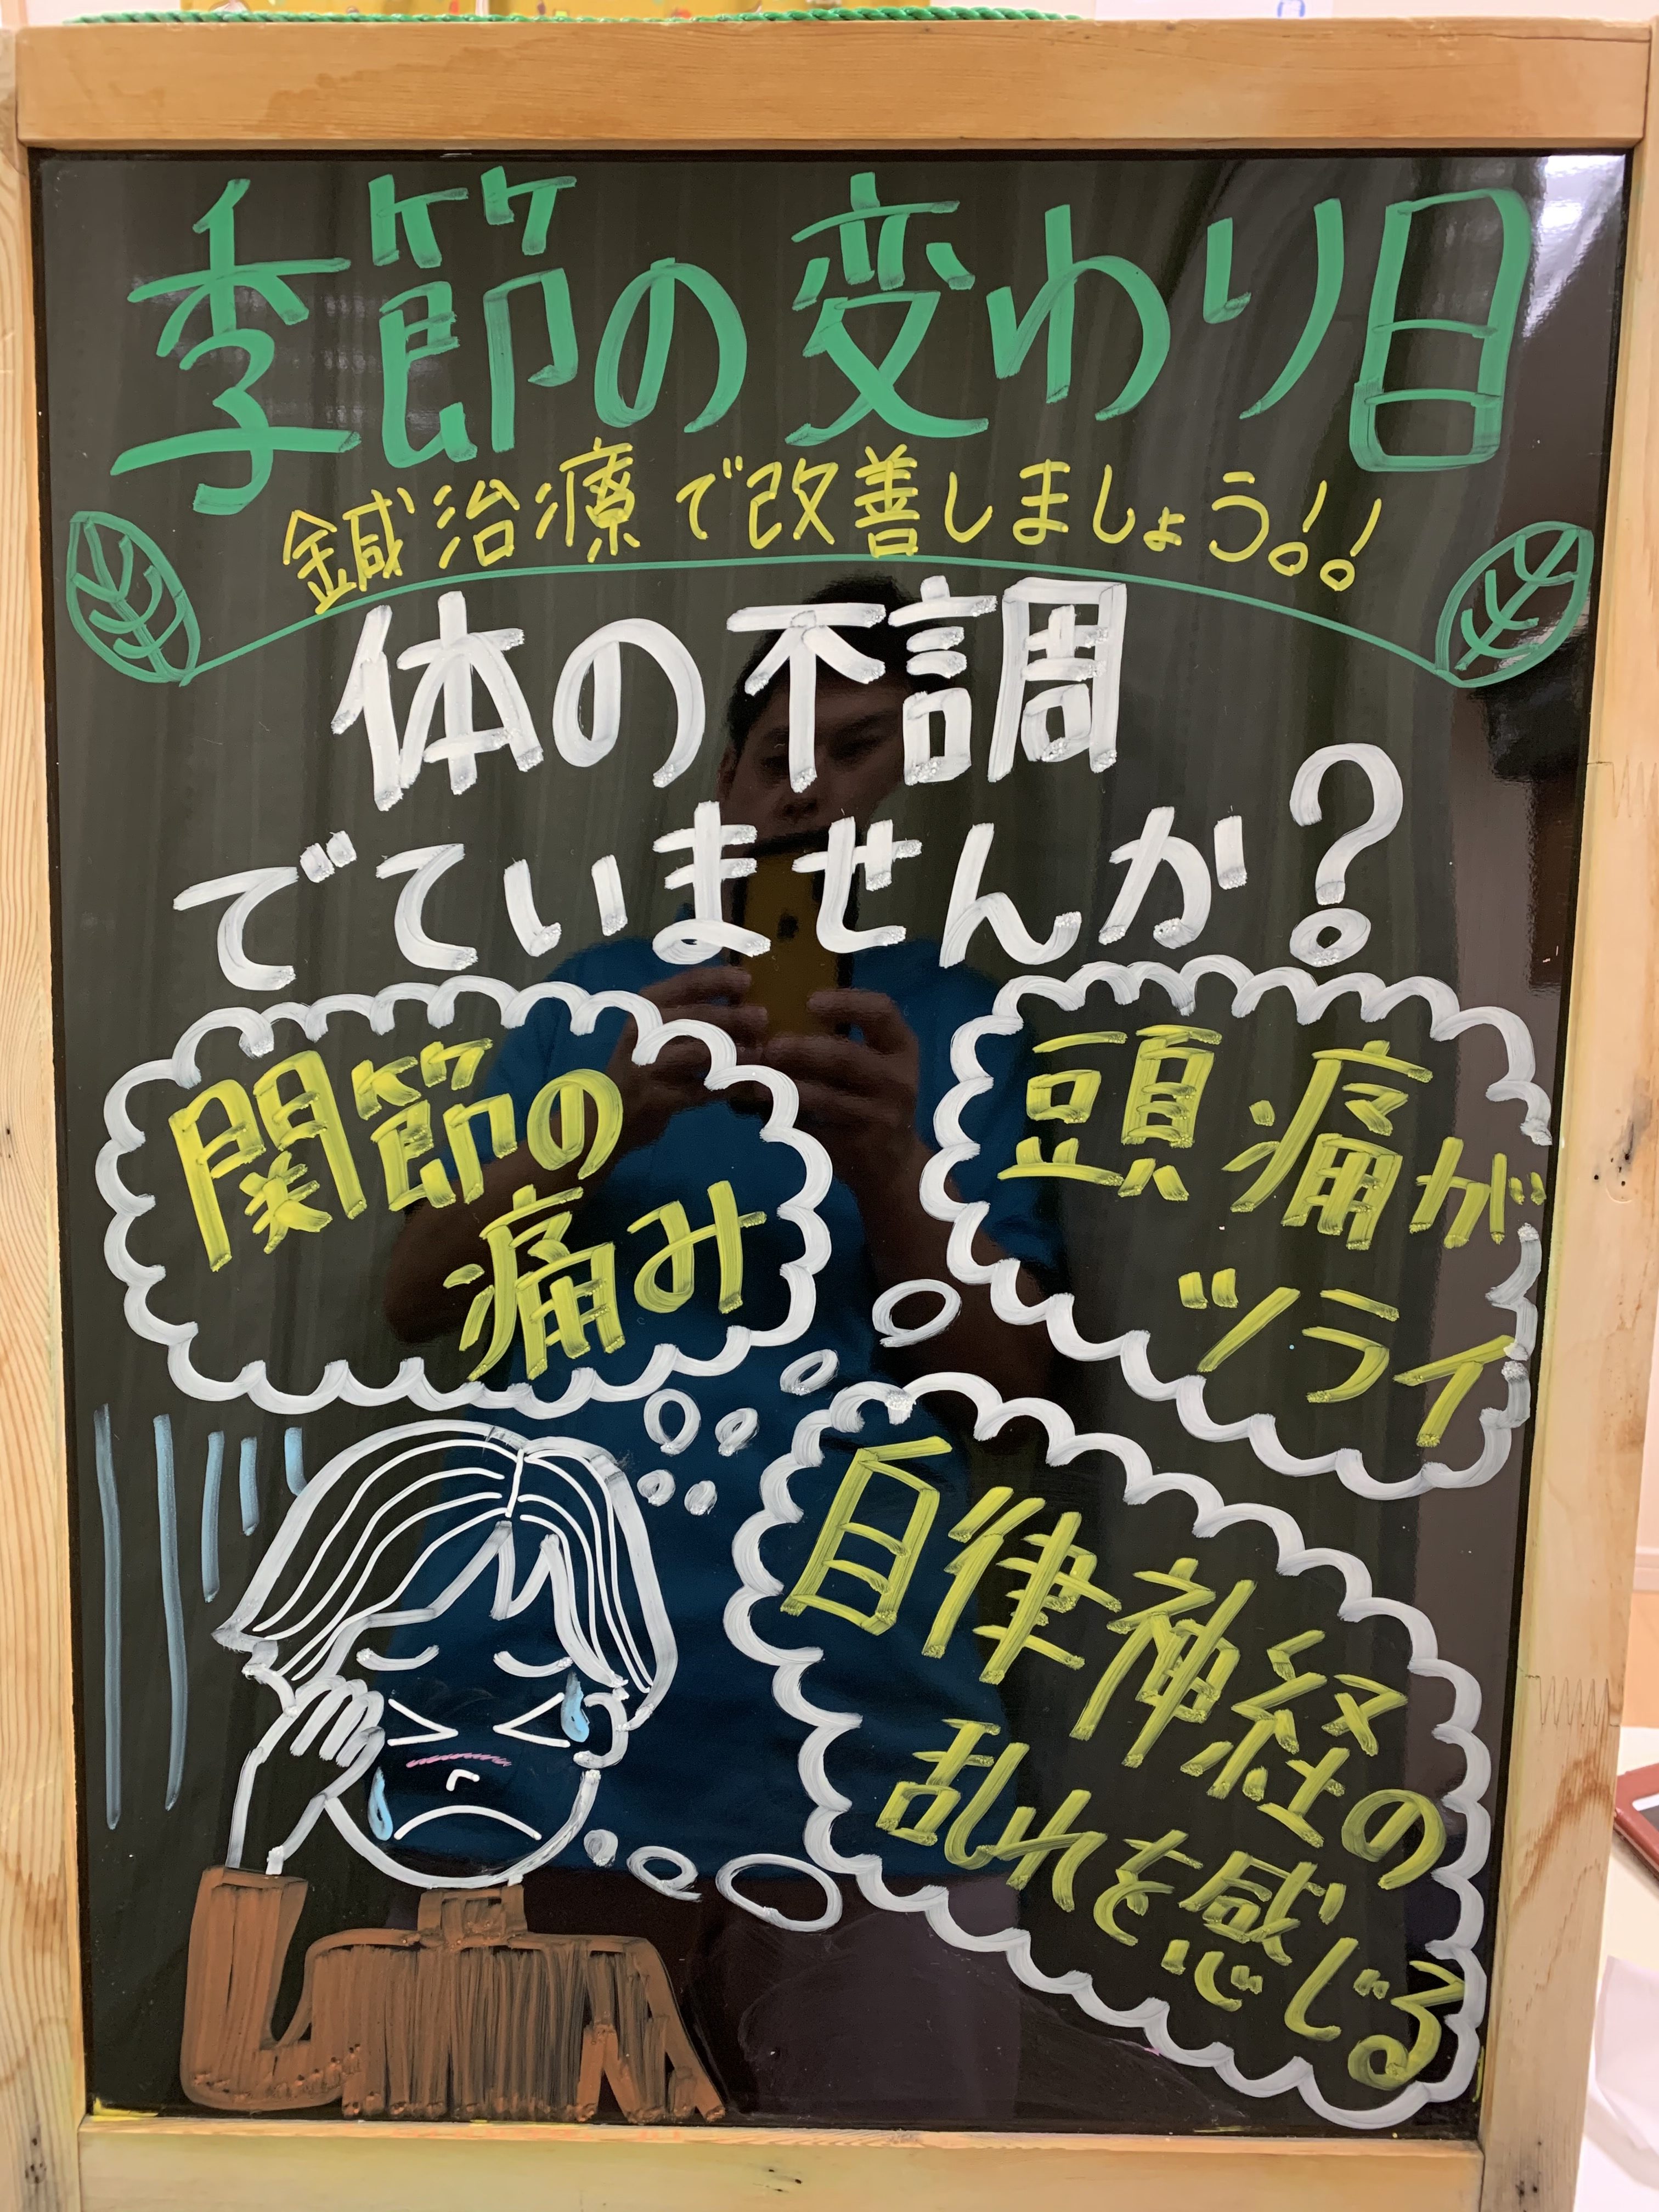 季節の変わり目
鍼治療で改善しましょう!!
体の不調
でていませんか?
関節の
痛み
頭痛が
ツライ
自律神経の
乱れを感じる